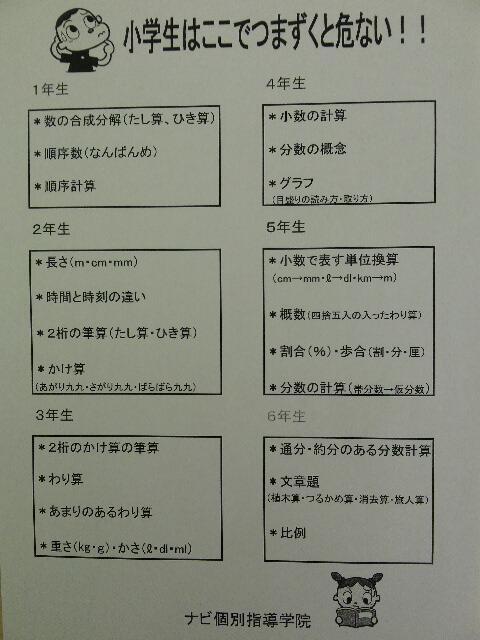 小学生はここでつまずくと危ない！！
1年生
＊数の合成分解(たし算、ひき算)
＊順序数(なんばんめ)
＊順序計算
2年生
＊長さ(m・cm・mm)
＊時間と時刻の違い
＊2桁の筆算(たし算・ひき算)
＊かけ算
(あがり九九・さがり九九・ばらばら九九)
3年生
＊2桁のかけ算の筆算
＊わり算
＊あまりのあるわり算
＊重さ(kg・g)・かさ(ℓ・dl・ml)
4年生
＊小数の計算
＊分数の概念
＊グラフ
(目盛りの読み方・取り方)
5年生
＊小数で表す単位換算
(cm→mm・ℓ→dl・km→m)
＊概数(四捨五入の入ったわり算)
＊割合(％)・歩合(割・分・厘)
＊分数の計算(帯分数→仮分数)
6年生
＊通分・約分のある分数計算
＊文章題
(植木算・つるかめ算・消去算・旅人算)
＊比例
ナビ個別指導学院